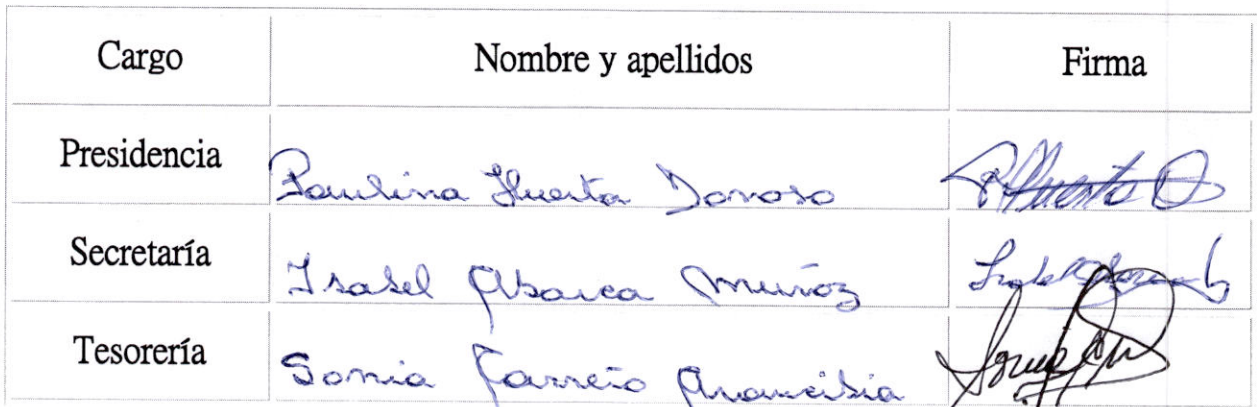 Cargo Nombre y apellidos Firma
Presidencia Paulina Huerta Donoso PHuerta D
Secretaría Isabel Abarca Muñoz
Tesorería Sonia Carreño Arancibia